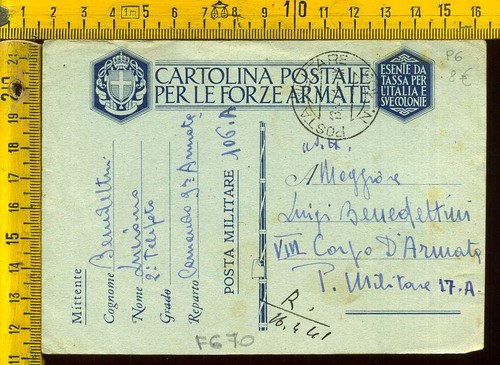 CARTOLINA POSTALE
PER LE FORZE ARMATE
ESENTE DA
TASSA PER
L'ITALIA E
SVE COLONIE
P6
8 €
POSTA MILITARE
Mittente
Cognome Benedettini
Nome Luciano
Grado
Reparto Comando 9ª Armata
POSTA MILITARE 106. A
Maggiore
Luigi Benedettini
VIII Corpo D'Armata
P. Militare 17. A.
R.
16.4.41
F670